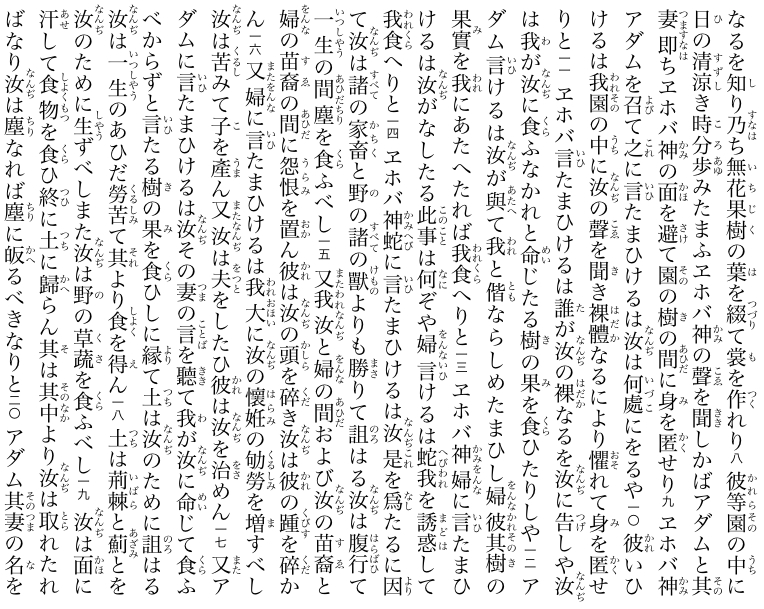 なるを知り乃ち無花果樹の葉を綴て裳を作れり八 彼等園の中に
日の清涼き時分歩みたまふヱホバ神の聲を聞しかばアダムと其
妻即ちヱホバ神の面を避て園の樹の間に身を匿せり九 ヱホバ神
アダムを召て之に言たまひけるは汝は何處にをるや一〇 彼いひ
けるは我園の中に汝の聲を聞き裸體なるにより懼れて身を匿せ
りと一一 ヱホバ言たまひけるは誰が汝の裸なるを汝に告しや汝
は我が汝に食ふなかれと命じたる樹の果を食ひたりしや一二 ア
ダム言けるは汝が與て我と偕ならしめたまひし婦彼其樹の
果實を我にあたへたれば我食へりと一三 ヱホバ神婦に言たまひ
けるは汝がなしたる此事は何ぞや婦言けるは蛇我を誘惑して
我食へりと一四 ヱホバ神蛇に言たまひけるは汝是を爲たるに因
て汝は諸の家畜と野の諸の獸よりも勝りて詛はる汝は腹行て
一生の間塵を食ふべし一五 又我汝と婦の間および汝の苗裔と
婦の苗裔の間に怨恨を置ん彼は汝の頭を碎き汝は彼の踵を碎か
ん一六 又婦に言たまひけるは我大に汝の懷姙の劬勞を増すべし
汝は苦みて子を產ん又汝は夫をしたひ彼は汝を治めん一七 又ア
ダムに言たまひけるは汝その妻の言を聽て我が汝に命じて食ふ
べからずと言たる樹の果を食ひしに緣て土は汝のために詛はる
汝は一生のあひだ勞苦て其より食を得ん一八 土は荊棘と薊とを
汝のために生ずべしまた汝は野の草蔬を食ふべし一九 汝は面に
汗して食物を食ひ終に土に歸らん其は其中より汝は取れたれ
ばなり汝は塵なれば塵に皈るべきなりと二〇 アダム其妻の名を